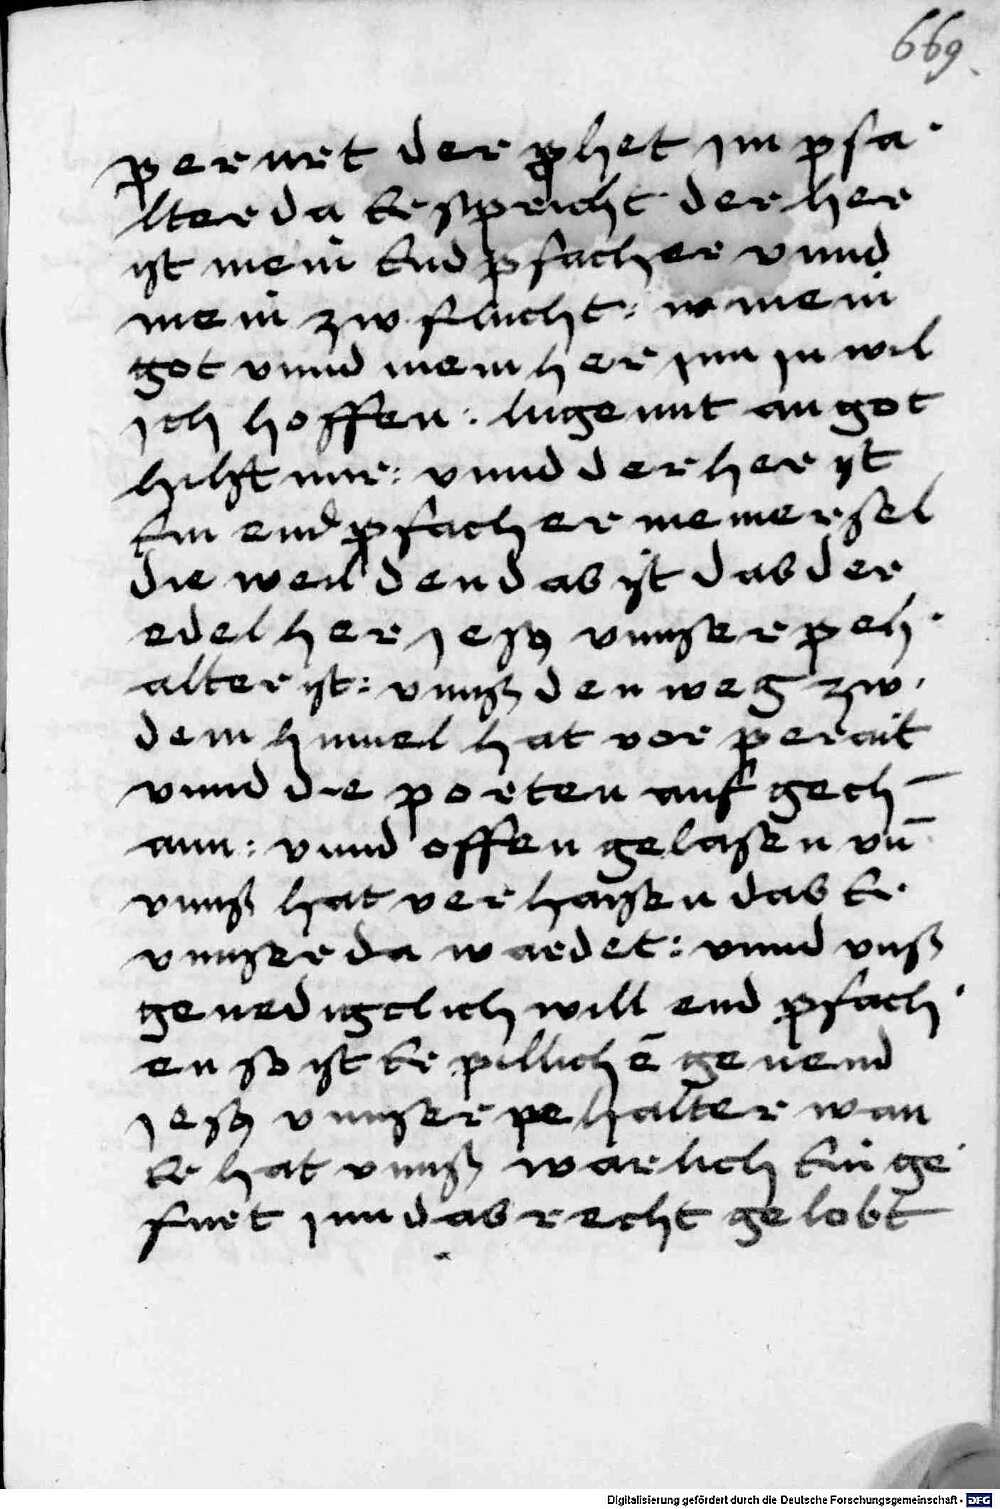 669
perurt der pphet im psa
lter da Er spricht der her
ist mein End pfacher vnnd
mein zw flucht: w mein
got vnnd mein her inn in wil
ich hoffen: lugennt an got
hilft mir: vnnd der her ist
Ein end pfacher meiner sel
die weil den das ist das der
edel her jesus vnnser peh
alter ist: vnnß den weg zw
dem himel hat vor perait
vnnd die porten auf gech
ann: vnnd offen gelasen vn̄
vnnß hat verhaisen das Er
vnnser da wardet: vnnd vnß
genedigclich will end pfach
en so ist Er pillichē genend
jesus vnnser pehalter wan
Er hat vnnß warlich Ein ge
furt inn das recht gelobt
Digitalisierung gefördert durch die Deutsche Forschungsgemeinschaft - DFG